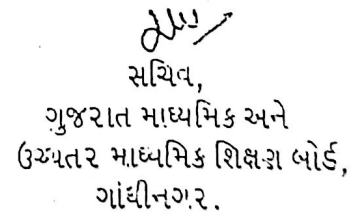 સચિવ,
ગુજરાત માધ્યમિક અને
ઉચ્ચતર માધ્યમિક શિક્ષણ બોર્ડ,
ગાંધીનગર.